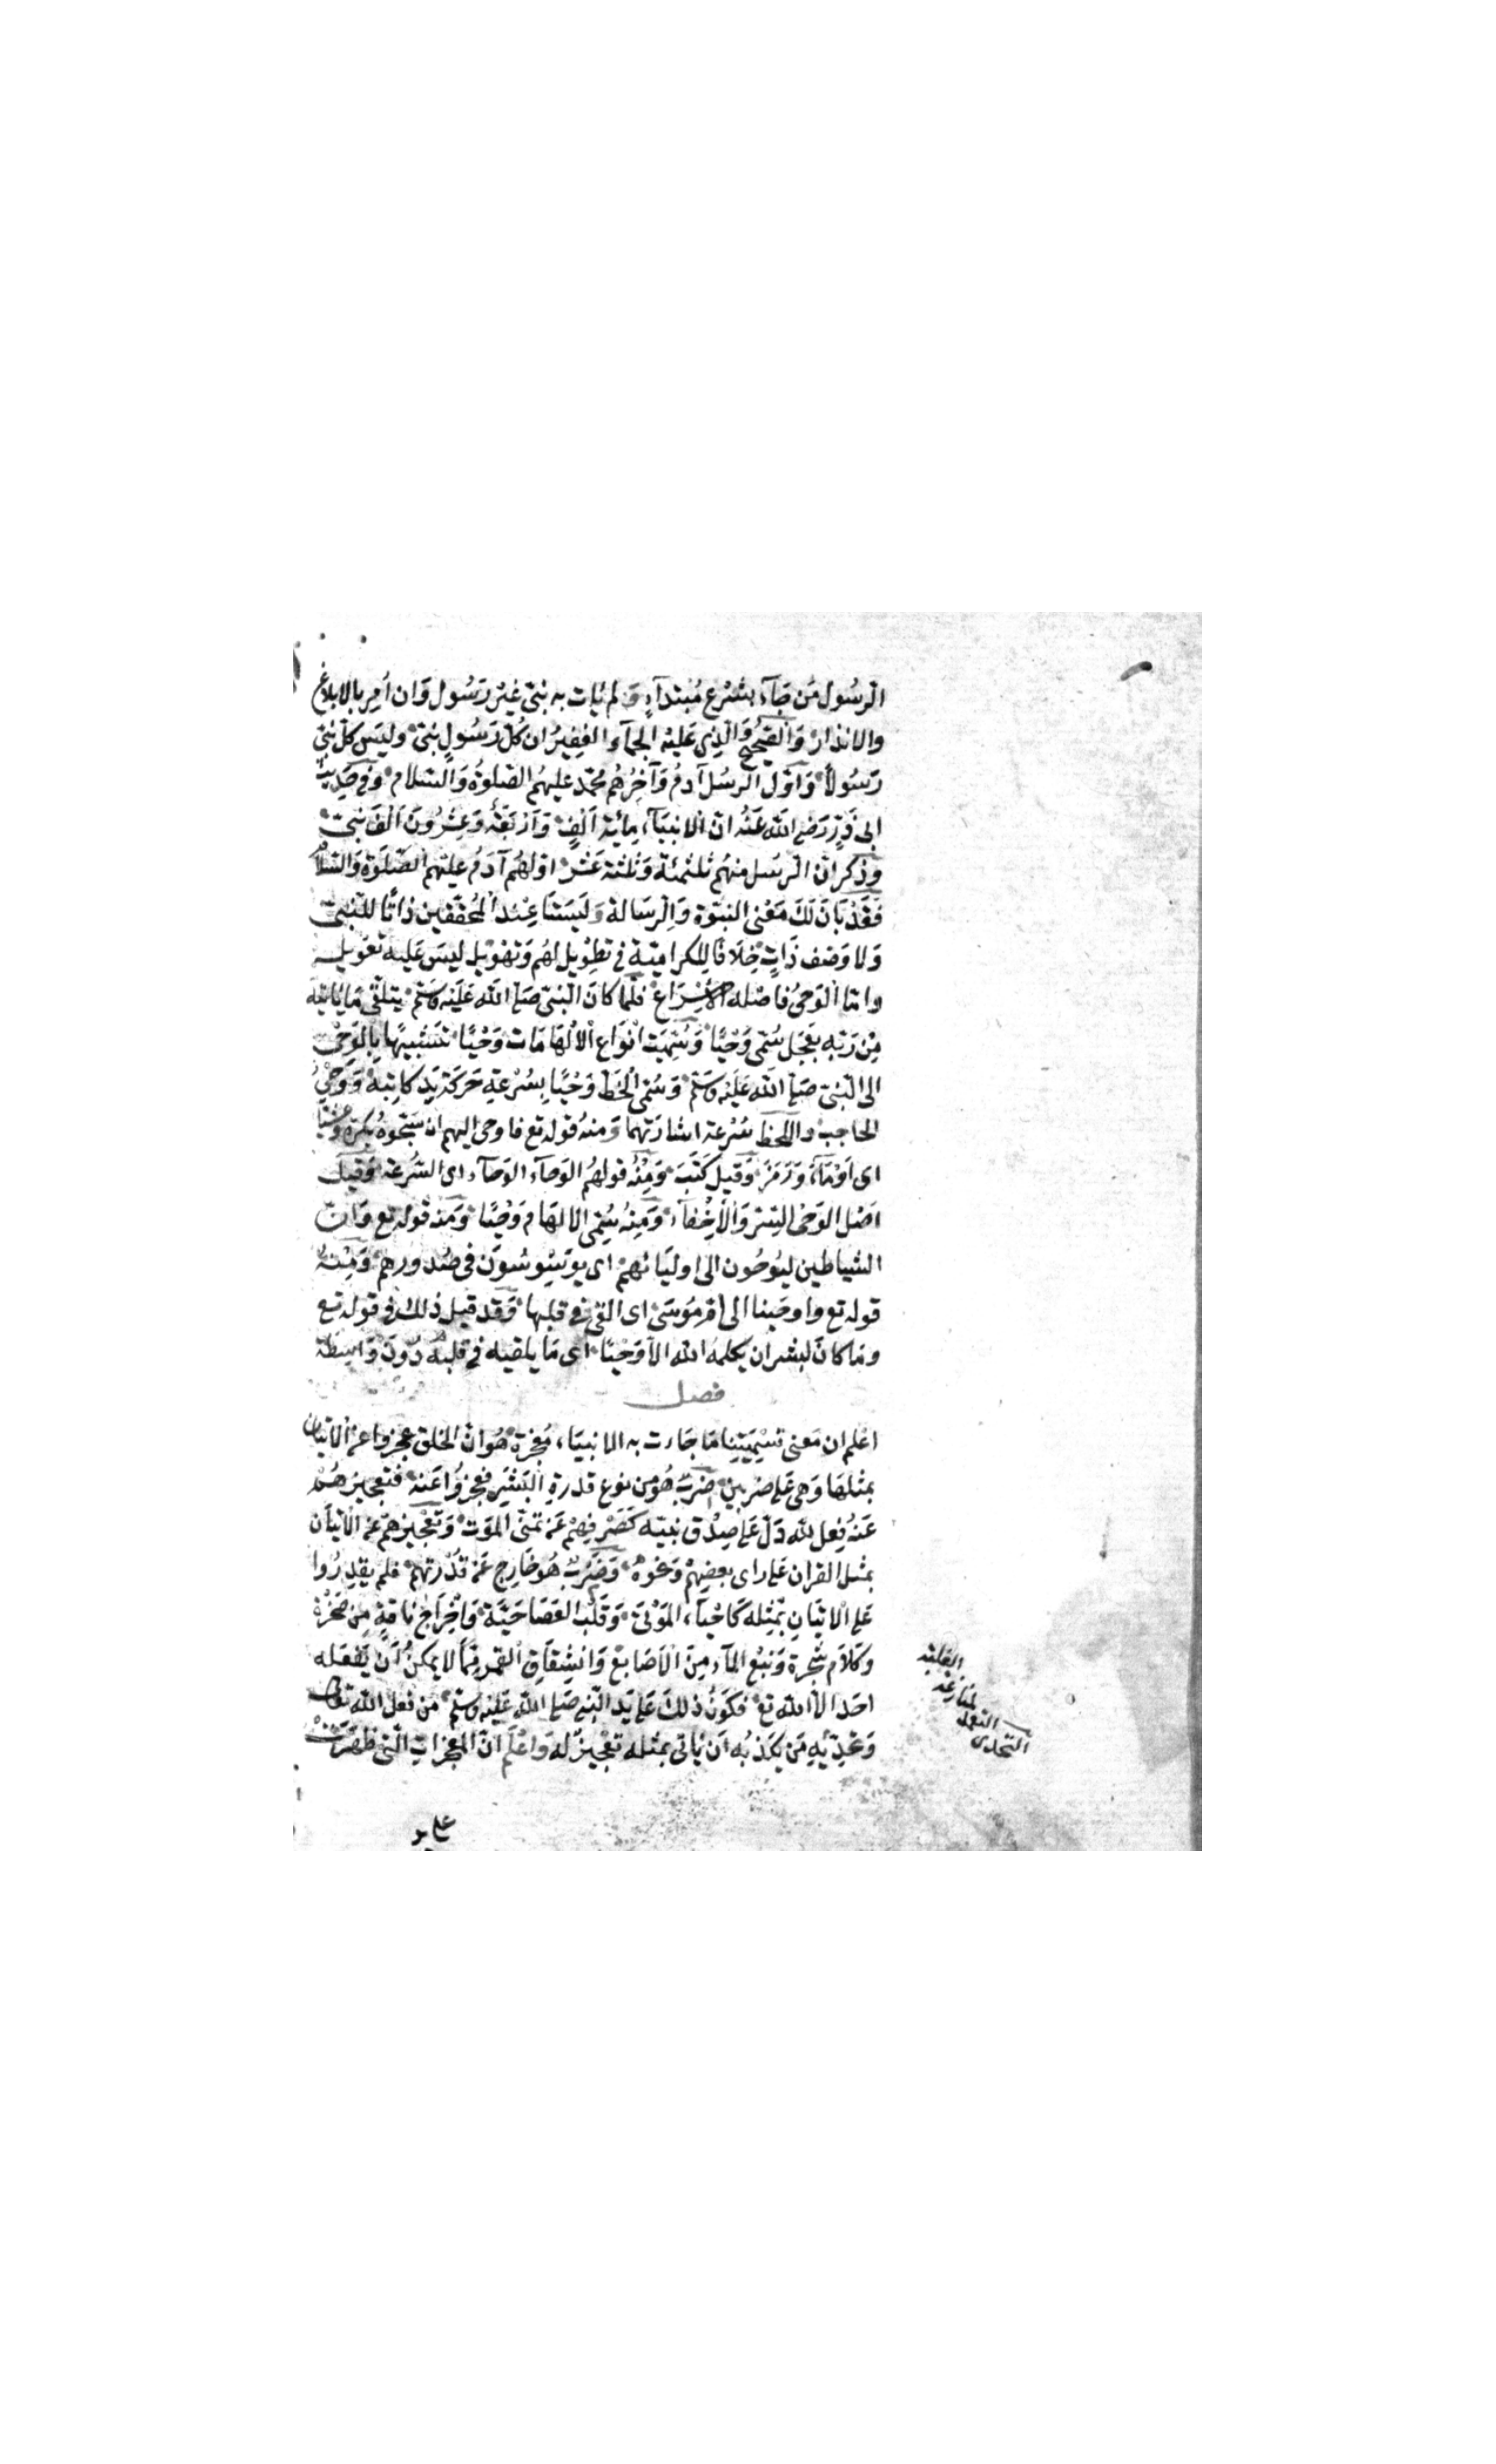 الرسول من جآء بشرع مبتدآء و لم يات به نبى غير رسول وان امر بالابلاغ
والانذار والصحيح والذى عليه الجمآء الغفير ان كل رسول نبى وليس كل نبى
رسولا واول الرسل آدم وآخرهم محمد عليهم الصلوة والسلام وفى حديث
ابى ذر رضى الله عنه ان الانبيآء مائة الف واربعة وعشرون الف نبى
وذكر ان الرسل منهم ثلثمئة وثلثة عشر اولهم آدم عليهم الصلوة والسلام
فقد بان لك معنى النبوة والرسالة وليستا عند المحققين ذاتا للنبى
ولا وصف ذات خلافا للكرامية فى تطويل لهم وتهويل ليس عليه تعويل
واما الوحى فاصله الاسراع فلما كان النبى صلى الله عليه وسلم يتلقى ما ياتيه
من ربه بعجل سمى وحيا وسميت انواع الالهامات وحيا تشبيها بالوحى
الى النبى صلى الله عليه وسلم وسمى الخط وحيا بسرعة حركة يد كاتبه ووحى
الحاجب واللحظ سرعة اشارتهما ومنه قوله تع فاوحى اليهم ان سبحوه بكرة وعشيا
اى اومآ ورمز وقيل كتب ومنه قولهم الوحآء الوحآء اى السرعة وقيل
اصل الوحى السر والاخفآء ومنه سمى الالهام وحيا ومنه قوله تع وان
الشياطين ليوحون الى اوليائهم اى يوسوسون فى صدورهم ومنه
قوله تع واوحينا الى ام موسى اى القى فى قلبها وقد قيل ذلك فى قوله تع
وما كان لبشر ان يكلمه الله الا وحيا اى ما يلقيه فى قلبه دون واسطة
فصل
اعلم ان معنى تسميتنا ما جاءت به الانبياء معجزة هو ان الخلق عجزوا عن الاتيان
بمثلها وهى على ضربين ضرب هو من نوع قدرة البشر فعجزوا عنه فتعجيزهم
عنه فعل لله دل على صدق نبيه كصرفهم عن تمنى الموت وتعجيزهم عن الاتيان
بمثل القران على راى بعضهم ونحوه وضرب هو خارج عن قدرتهم فلم يقدروا
على الاتيان بمثله كاحيآء الموتى وقلب العصا حية واخراج ناقة من صخرة
وكلام شجرة ونبع المآء من الاصابع وانشقاق القمر مما لا يمكن ان يفعله
احد الا الله تع فكون ذلك على يد النبى صلى الله عليه وسلم من فعل الله تعالى
وتحديه من يكذبه ان ياتى بمثله تعجيز له واعلم ان المعجزات التى ظهرت
التحدى
لمنازعة
الغلبة
على يد